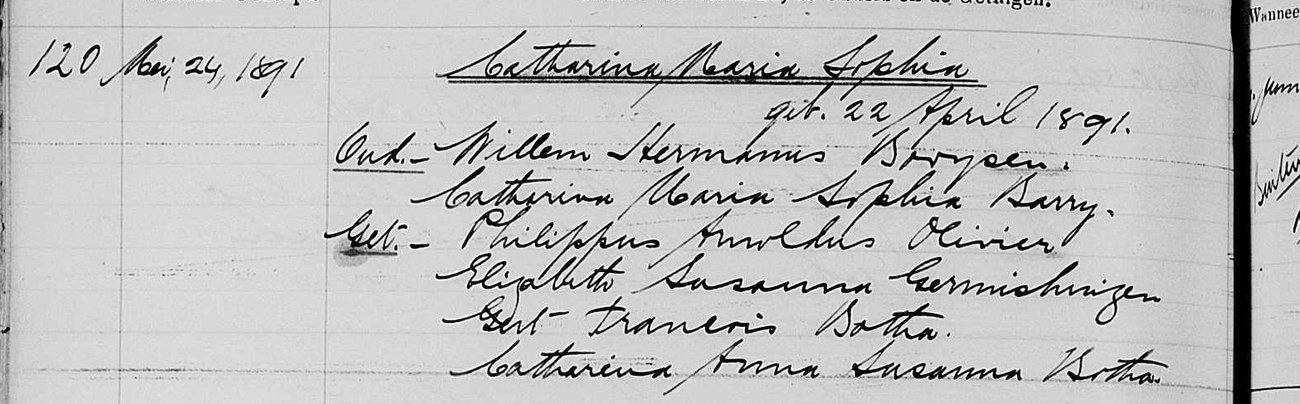 en de Getuigen.
Wannee
120 Mei, 24, 1891 Catharina Maria Sophia
geb. 22 April 1891.
Oud. - Willem Hermanus Booysen.
Catharina Maria Sophia Barry.
Get. - Philippus Arnoldus Olivier
Elizabeth Susanna Germishuizen
Gert Francois Botha.
Catharina Anna Susanna Botha.